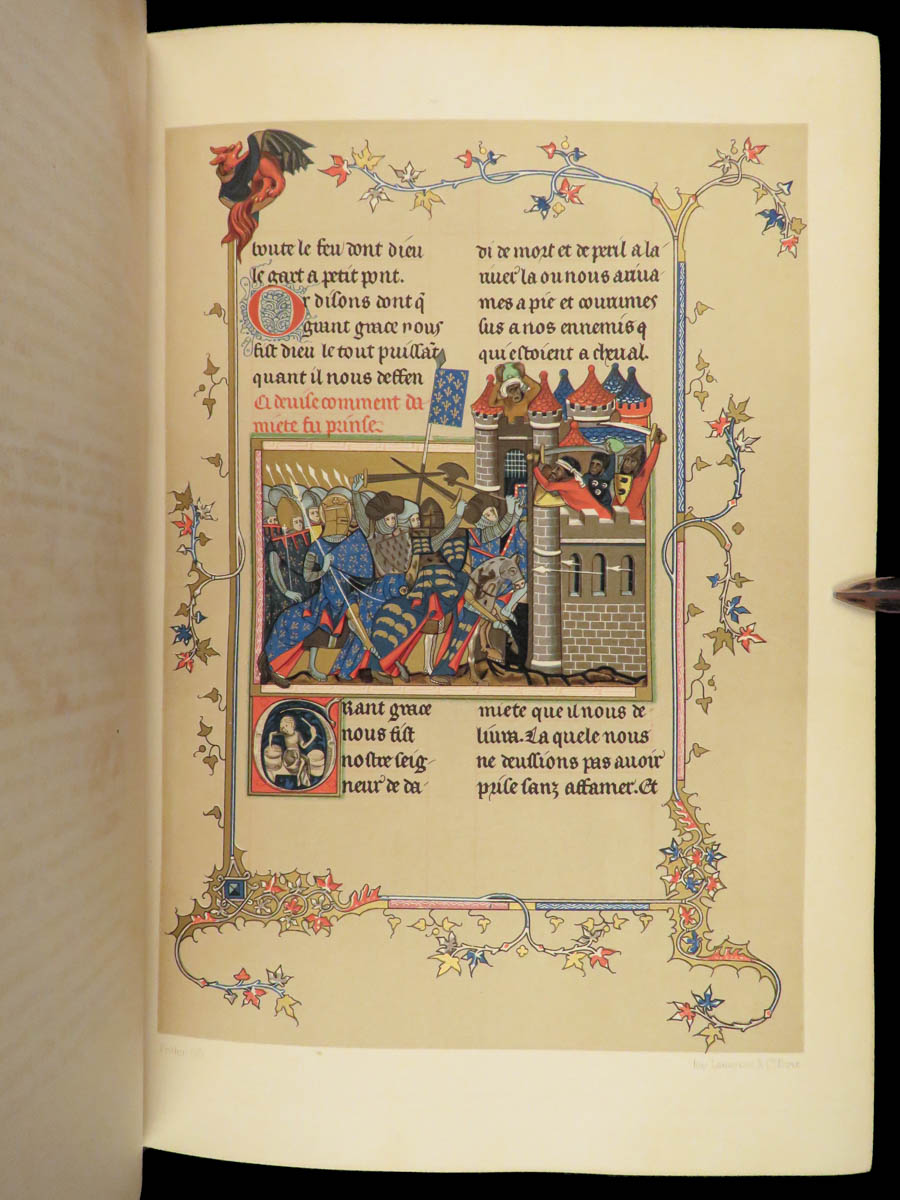 toute le feu dont dieu
le gart a petit pont.
Or disons dont q̄
grant grace nous
fist dieu le tout puissāt
quant il nous deffen
Ci deuise comment da
miete fu prinse.
di de mort et de peril a la
riuer la ou nous arriua
mes a pie et courumes
sus a nos ennemis q
qui estoient a cheual.
GRant grace
nous fist
nostre seig-
neur de da
miete que il nous de
liura. La quele nous
ne deussions pas auoir
prise sanz affamer. Et
Imp. Lemercier & Cie Paris